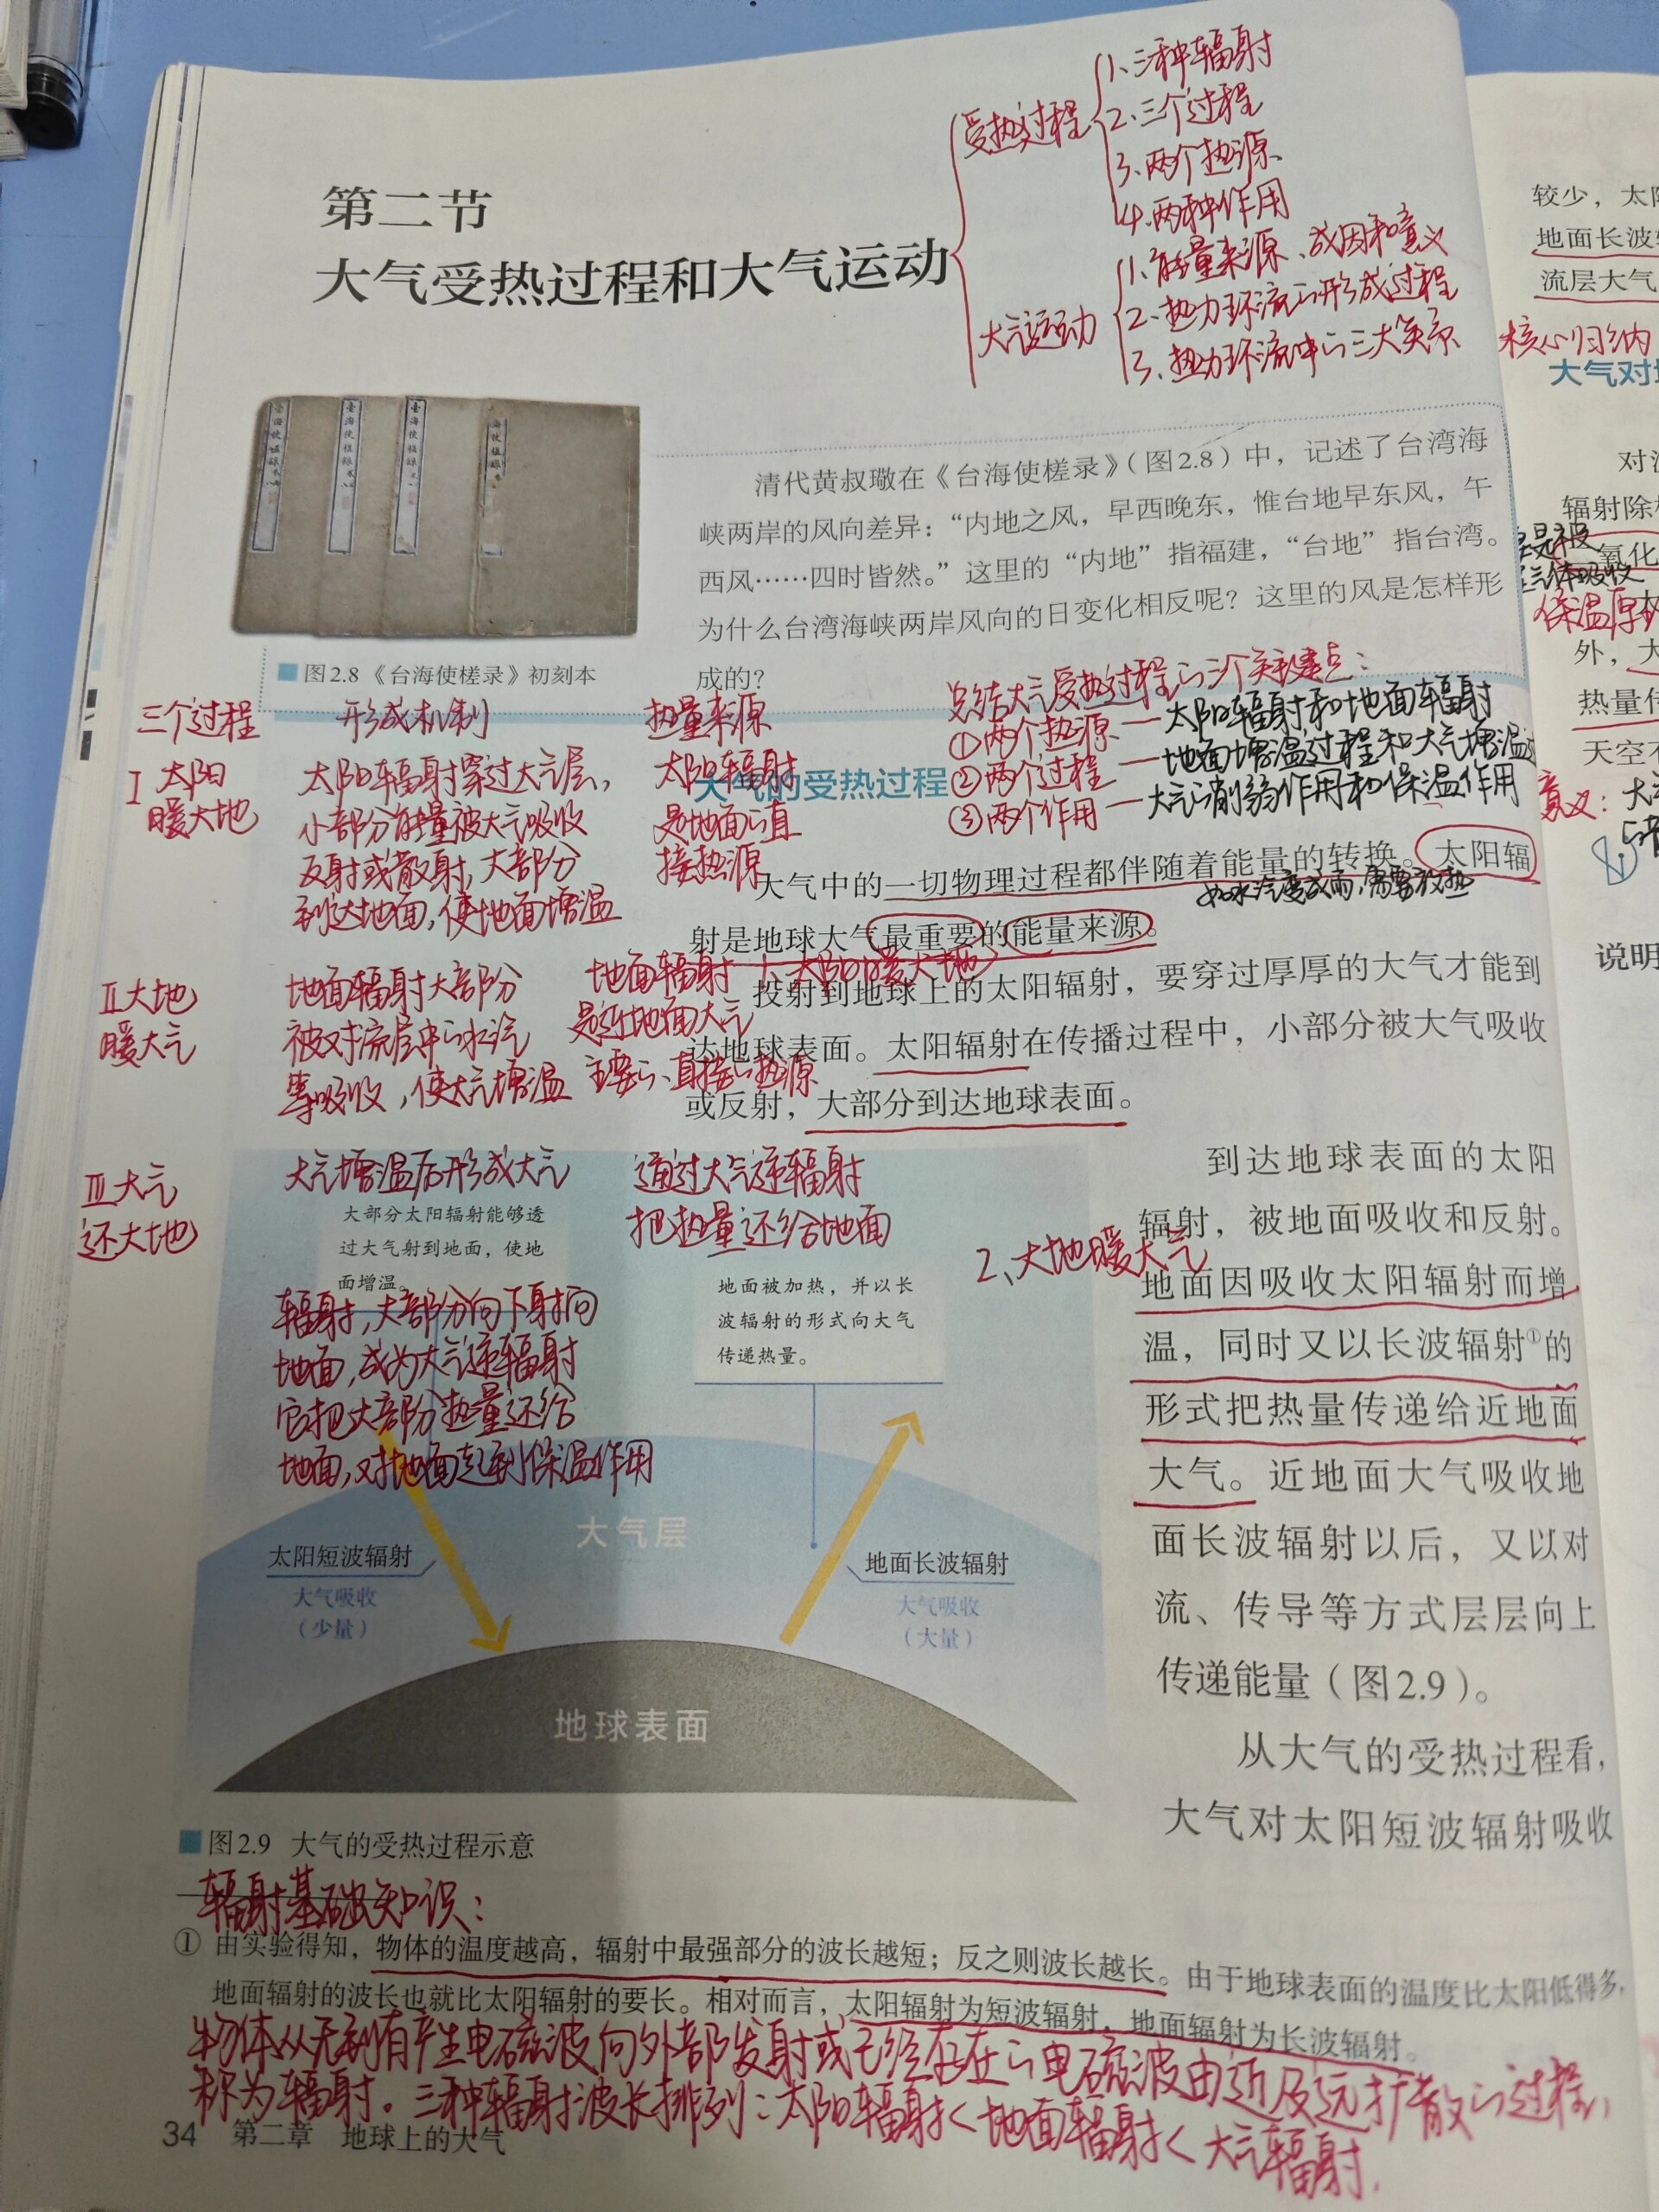 受热过程
1、三种辐射
2、三个过程
3、两个热源
4、两种作用
大气运动
1、能量来源、成因和意义
2、热力环流的形成过程
3、热力环流中的三大关系
第二节
大气受热过程和大气运动
清代黄叔璥在《台海使槎录》(图2.8)中，记述了台湾海
峡两岸的风向差异：“内地之风，早西晚东，惟台地早东风，午
西风……四时皆然。”这里的“内地”指福建，“台地”指台湾。
为什么台湾海峡两岸风向的日变化相反呢？这里的风是怎样形
成的？
图2.8《台海使槎录》初刻本
总结大气受热过程的三个关键点：
①两个热源—太阳辐射和地面辐射
②两个过程—地面增温过程和大气增温过
③两个作用—大气的削弱作用和保温作用
三个过程 形成机制 热量来源
I 太阳
暖大地
太阳辐射穿过大气层，
小部分能量被大气吸收
反射或散射，大部分
到达地面，使地面增温
太阳辐射
是地面的直
接热源
II 大地
暖大气
地面辐射大部分
被对流层中的水汽
等吸收，使大气增温
地面辐射
是近地面大气
主要的、直接的热源
III 大气
还大地
大气增温后形成大气
辐射，大部分向下射向
地面，成为大气逆辐射
它把大部分热量还给
地面，对地面起到保温作用
通过大气逆辐射
把热量还给地面
大气的受热过程
大气中的一切物理过程都伴随着能量的转换。太阳辐
如水汽变成雨，需要放热
射是地球大气最重要的能量来源。
1、太阳暖大地
投射到地球上的太阳辐射，要穿过厚厚的大气才能到
达地球表面。太阳辐射在传播过程中，小部分被大气吸收
或反射，大部分到达地球表面。
到达地球表面的太阳
辐射，被地面吸收和反射。
2、大地暖大气
地面因吸收太阳辐射而增
温，同时又以长波辐射①的
形式把热量传递给近地面
大气。近地面大气吸收地
面长波辐射以后，又以对
流、传导等方式层层向上
传递能量(图2.9)。
从大气的受热过程看，
大气对太阳短波辐射吸收
大部分太阳辐射能够透
过大气射到地面，使地
面增温。
地面被加热，并以长
波辐射的形式向大气
传递热量。
大气层
太阳短波辐射
大气吸收
(少量)
地面长波辐射
大气吸收
(大量)
地球表面
图2.9 大气的受热过程示意
辐射基础知识：
① 由实验得知，物体的温度越高，辐射中最强部分的波长越短；反之则波长越长。由于地球表面的温度比太阳低得多，
地面辐射的波长也就比太阳辐射的要长。相对而言，太阳辐射为短波辐射，地面辐射为长波辐射。
物体从无到有产生电磁波向外部发射或已经存在的电磁波由近及远扩散的过程，
称为辐射。三种辐射波长排列：太阳辐射<地面辐射<大气辐射.
34 第二章 地球上的大气
较少，太阳
地面长波
流层大气
核心归纳
大气对
对
辐射除
是被
氧化
气体吸收
保温
外，大
热量传
天空
意义：大
说明